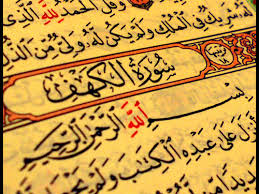 وَقُلِ الْحَمْدُ لِلَّهِ الَّذِي
شَرِيكٌ فِي الْمُلْكِ وَلَمْ يَكُن لَّهُ وَلِيٌّ مِّنَ الذُّلِّ
سُورَةُ الْكَهْفِ
بِسْمِ اللَّهِ الرَّحْمَٰنِ الرَّحِيمِ
نزَلَ عَلَىٰ عَبْدِهِ الْكِتَٰبَ وَلَمْ